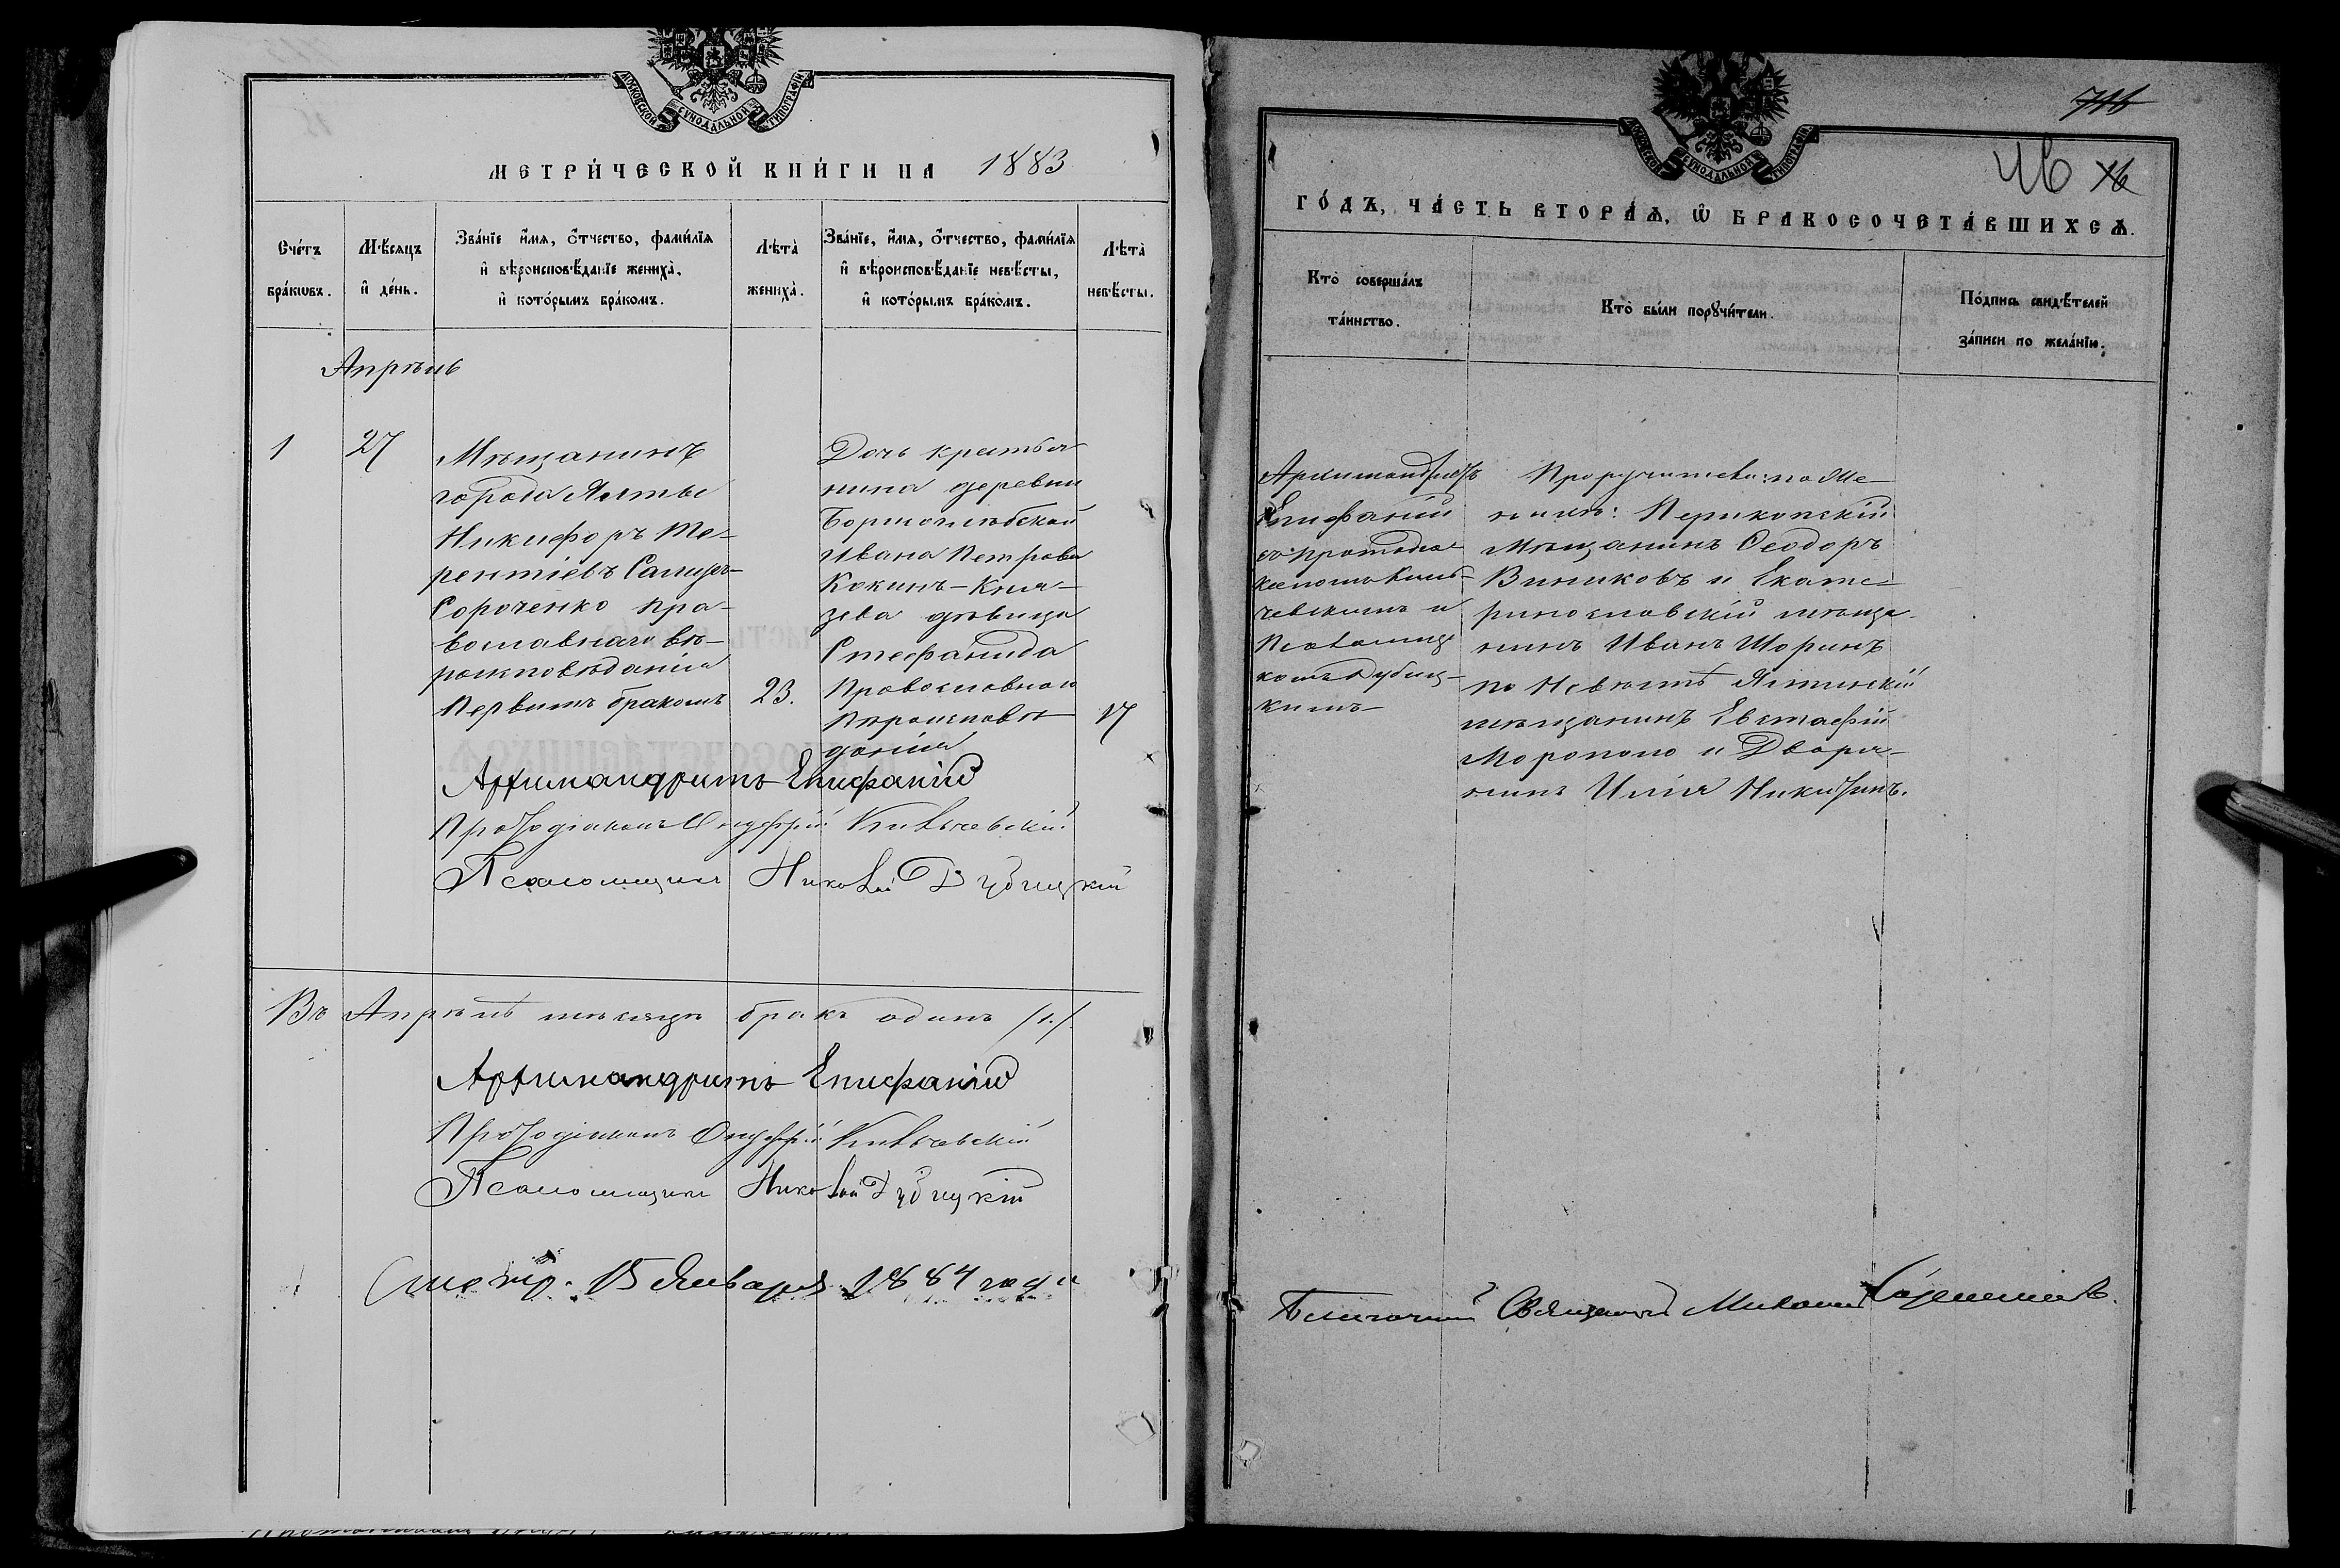 МОСКОВСКОЙ СѴНОДАЛЬНОЙ ТИПОГРАФІИ
МЕТРИ́ЧЕСКОЙ КНИ́ГИ НА 1883
Сче́тъ бра́кѡвъ.
М҃ѣсяцъ и҆ де́нь.
Зва́нїе и҆́мѧ, ѻ҆́тчество, фами́лїѧ и҆ вѣроисповѣ́данїе жениха̀, и҆ кото́рымъ бра́комъ.
Лѣта̀ жениха̀.
Зва́нїе, и҆́мѧ, ѻ҆́тчество, фами́лїѧ и҆ вѣроисповѣ́данїе невѣ́сты, и҆ кото́рымъ бра́комъ.
Лѣта̀ невѣ́сты.
Апрѣль
1
27
Мѣщанинъ
города Ялты
Никифоръ Те-
рентіевъ
Сороченко пра-
вославнаго вѣ-
роисповѣданія
Первымъ бракомъ
23.
Дочь крестья
нина деревни
Ивана Петрова
Кокинъ-Кня-
зева дѣвица
Стефанида
Православнаго
вѣроисповѣ
данія
17
Архимандритъ Епифаній
Протодіаконъ
Псаломщикъ Николай Дубицкій
Въ Апрѣлѣ мѣсяцѣ бракъ одинъ /1./
Архимандритъ Епифаній
Протодіаконъ
Псаломщикъ Николай Дубицкій
15 Января 1884 года
МОСКОВСКОЙ СѴНОДАЛЬНОЙ ТИПОГРАФІИ
46 16
ГО́ДЪ, ЧА́СТЬ ВТОРА́Ѧ, Ѡ҆ БРАКОСОЧЕТА́ВШИХСѦ.
Кто̀ соверша́лъ та́инство.
Кто̀ бы́ли порꙋчи́тели.
По́дпись свидѣ́телей за́писи по жела́нїю.
Архимандритъ
Епифаній
съ Протодіа
и
Псаломщи
комъ Дубиц-
кимъ
по Же-
нихѣ: Перикопскій
Мѣщанинъ Ѳеодоръ
Виниковъ и Екате-
ринославскій мѣща-
нинъ Иванъ Шоринъ
по Невѣстѣ Ялтинскій
мѣщанинъ Евстафій
и Дворя-
нинъ Илія Никитинъ.
Благочинный Священникъ